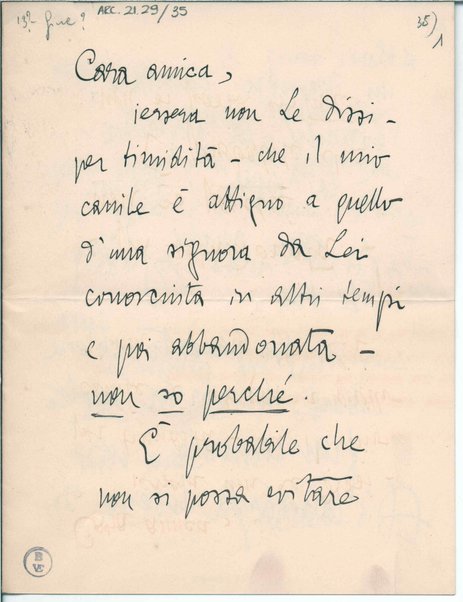 ARC. 21.29/35
35)
1
Cara amica,
iersera non Le dissi -
per timidità - che il mio
canile è attiguo a quello
d'una signora da Lei
conosciuta in altri tempi
e poi abbandonata -
non so perché.
È probabile che
non si possa evitare
B
VE